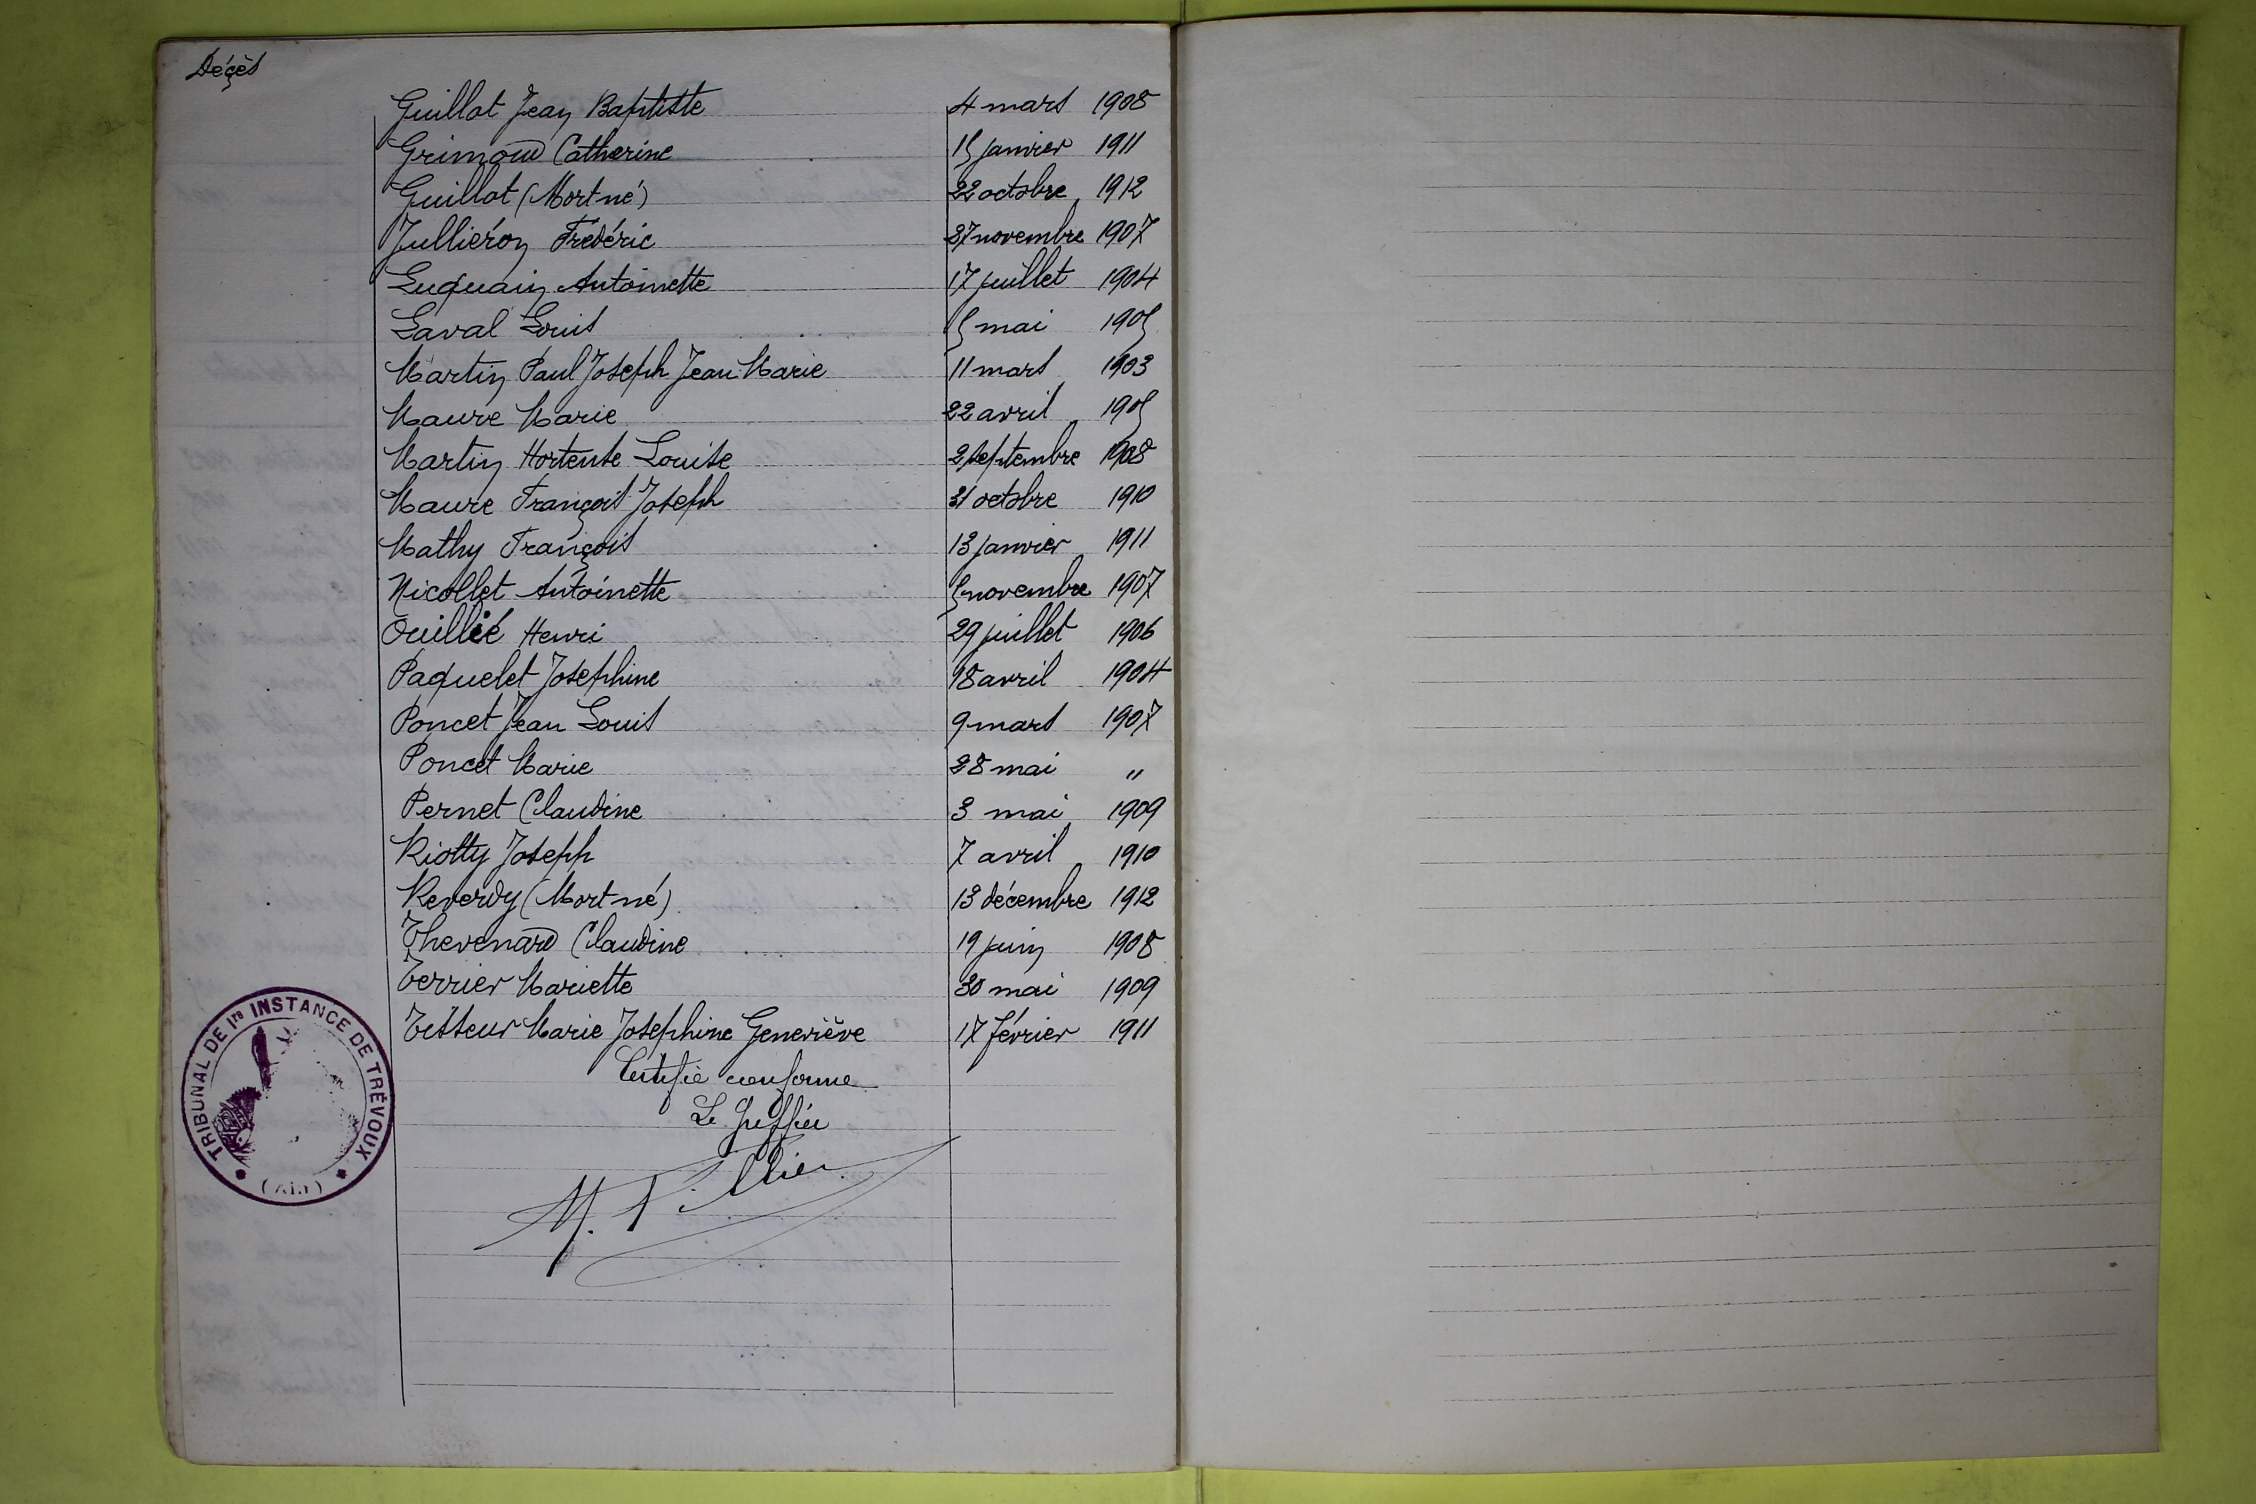 Décès
Guillot Jean Baptiste 4 mars 1908
Grimoud Catherine 15 janvier 1911
Guillot (Mort-né) 22 octobre 1912
Jullièron Frédéric 27 novembre 1907
Luquain Antoinette 17 juillet 1904
Laval Louis 15 mai 1905
Martin Paul Joseph Jean Marie 11 mars 1903
Maure Marie 22 avril 1905
Martin Hortense Louise 2 septembre 1908
Maure François Joseph 31 octobre 1910
Mathy François 13 janvier 1911
Nicollet Antoinette 5 novembre 1907
Ouillié Henri 29 juillet 1906
Paquelet Josephine 18 avril 1904
Poncet Jean Louis 9 mars 1907
Poncet Marie 28 mai "
Pernet Claudine 3 mai 1909
Riotty Joseph 7 avril 1910
Reverdy (Mort-né) 13 décembre 1912
Thevenard Claudine 19 juin 1908
Terrier Mariette 30 mai 1909
Tisseur Marie Josephine Geneviève 17 février 1911
Certifié conforme
Le Greffier
M.
TRIBUNAL DE 1re INSTANCE DE TRÉVOUX
(Ain)